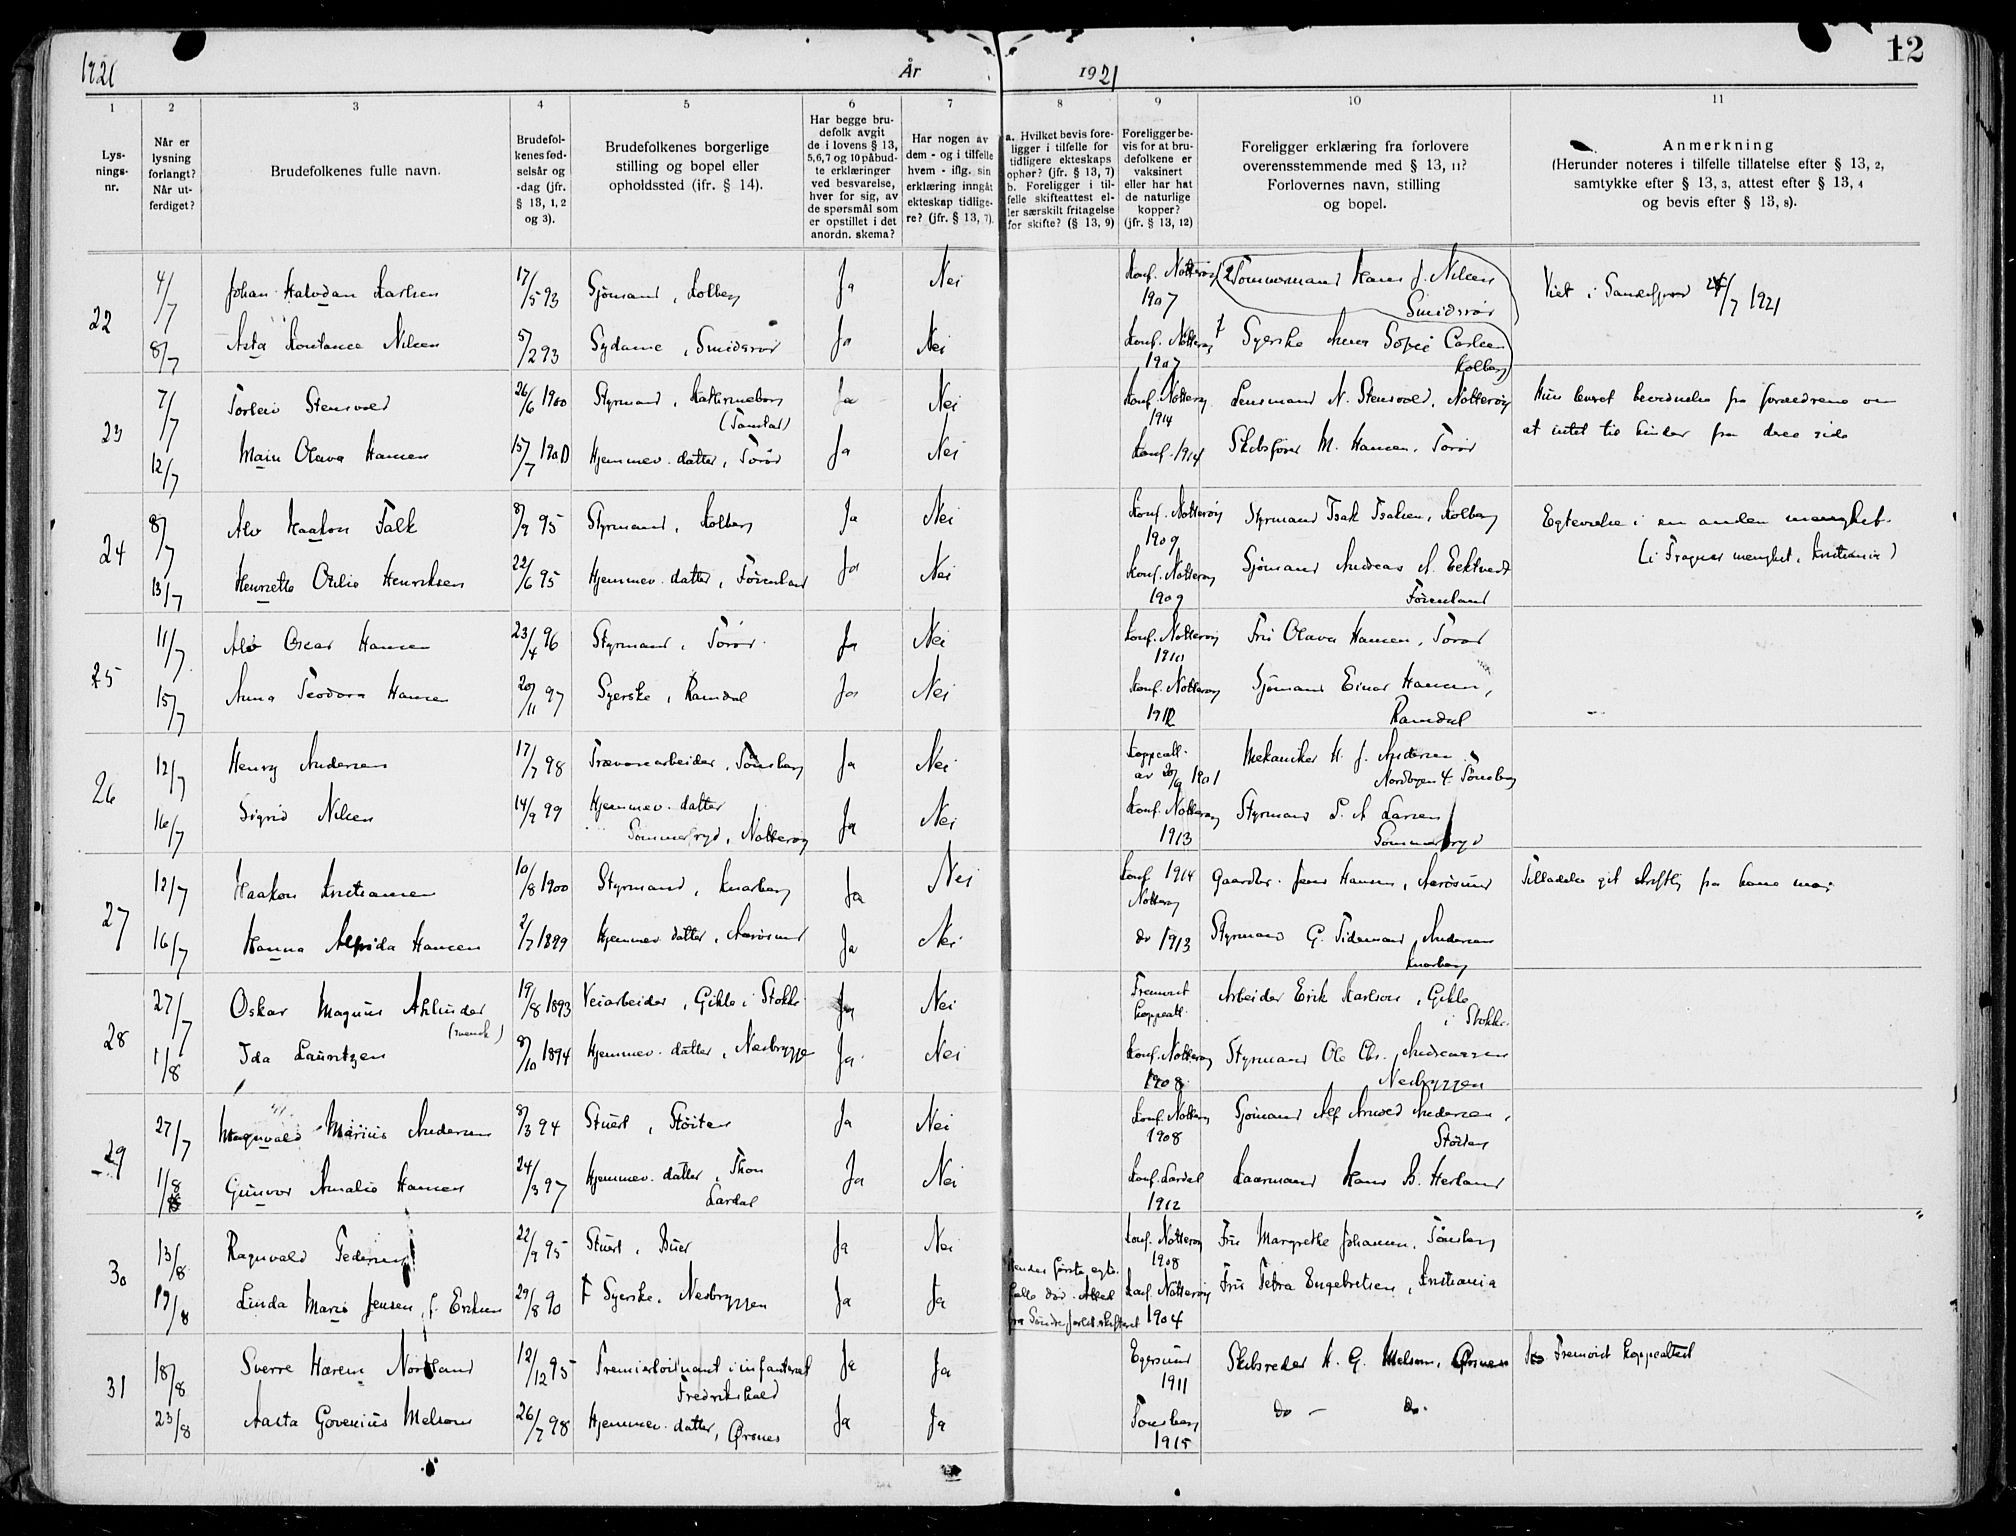 1921
År
1921
12
1
2
3
4
5
6
7
8
9
10
11
Lys-
nings-
nr.
Når er
lysning
forlangt?
Når ut-
ferdiget?
Brudefolkenes fulle navn.
Brudefol-
kenes fød-
selsår og
-dag (jfr.
§ 13, 1, 2
og 3).
Brudefolkenes borgerlige
stilling og bopel eller
opholdssted (ifr. § 14).
Har begge bru-
defolk avgit
de i lovens § 13,
5,6,7 og 10 påbud-
te erklæringer
ved besvarelse,
hver for sig, av
de spørsmål som
er opstillet i det
anordn. skema?
Har nogen av
dem - og i tilfelle
hvem - iflg. sin
erklæring inngåt
ekteskap tidlige-
re? (jfr. § 13, 7).
a. Hvilket bevis fore-
ligger i tilfelle for
tidligere ekteskaps
ophør? (jfr. § 13, 7)
b. Foreligger i til-
felle skifteattest el-
ler særskilt fritagelse
for skifte? (§ 13, 9)
Foreligger be-
vis for at bru-
defolkene er
vaksinert
eller har hat
de naturlige
kopper?
(jfr. § 13, 12)
Foreligger erklæring fra forlovere
overensstemmende med § 13, 11?
Forlovernes navn, stilling
og bopel.
Anmerkning
(Herunder noteres i tilfelle tillatelse efter § 13, 2,
samtykke efter § 13, 3, attest efter § 13, 4
og bevis efter § 13, 8).
22 4/7 Johan Halvdan Karlsen 17/5 93 Sjømand, Kolberg Ja Nei Konf. Nøtterøy 1907 2 Tømmermand Hans J. Nilsen Smidsrød Viet i Sandefjord /7 1921
8/7 Asta Konstance Nilsen 5/2 93 Sydame, Smidsrød Ja Nei Konf. Nøtterøy 1907 1 Syerske Anna Sofie Carlsen Kolberg
23 7/7 Torleiv Stensvold 26/6 1900 Styrmand, Kathrineborg Ja Nei Konf. Nøtterøy 1914 Lensmand N. Stensvold, Nøtterøy Hun leveret bevidnelse fra forældrene om
12/7 Olava Hansen 15/7 1900 Hjemmev. datter, Torød Ja Nei Konf. 1914 Skibsfører M. Hansen, Torød at intet til hinder fra deres side
24 8/7 Alv Haakon Falk 8/9 95 Styrmand, Kolberg Ja Nei Konf. Nøtterøy 1909 Styrmand Isak Isaksen, Kolberg Egtevielse i en anden menighet.
13/7 Henriette Otilie Henriksen 22/6 95 Hjemmev. datter, Føienland Ja Nei Konf. Nøtterøy 1909 Sjømand Andreas A. Føienland (i Frogner menighet, Kristiania)
25 11/7 Alv Oscar Hansen 23/4 96 Styrmand, Torød Ja Nei Konf. Nøtterøy 1910 Fru Olava Hansen, Torød
15/7 Anna Teodora Hansen 20/11 97 Syerske, Ramdal Ja Nei Konf. Nøtterøy 1912 Sjømand Einar Hansen, Ramdal
26 12/7 Henry Andersen 17/7 98 Trævarearbeider, Tønsberg Ja Nei Koppeatt. av 20/9 1901 Mekaniker H. J. Andersen Nordbyen 4. Tønsberg
16/7 Sigrid Nilsen 14/9 99 Hjemmev. datter Sommerfryd, Nøtterøy Ja Nei Konf. Nøtterøy 1913 Styrmand S. A. Larsen Sommerfryd
27 12/7 Haakon Kristiansen 10/8 1900 Styrmand, Knarberg Ja Nei Konf 1914 Nøtterøy Gaardbr. Jens Hansen, Aarøsund Tilladelse git skriftlig fra hans mor
16/7 Hanna Alfrida Hansen 2/7 1899 Hjemmev. datter, Aarøsund Ja Nei do 1913 Styrmand G. Tidemand Andersen Knarberg
28 27/7 Oskar Magnus Ahlinder (svensk) 19/8 1893 Veiarbeider, Gikle i Stokke Ja Nei Fremvist koppeatt. Arbeider Erik Karlson, Gikle i Stokke
1/8 Ida Lauritzen 8/10 1894 Hjemmev. datter, Nesbryggen Ja Nei Konf. Nøtterøy 1908 Styrmand Ole Chr. Andreassen Nesbryggen
29 27/7 Magnvald Marius Andersen 8/3 94 Stuert, Støiten Ja Nei Konf. Nøtterøy 1908 Sjømand Alf Arnold Andersen, Støiten
1/8 Gunvor Amalie Hansen 24/3 97 Hjemmev. datter, Thon Lardal Ja Nei Konf. Lardal 1912 Hans B. Herland
30 13/8 Ragnvald Pedersen 22/9 95 Stuert, Buer Ja Nei Konf. Nøtterøy 1908 Fru Margrethe Johansen, Tønsberg
19/8 Linda Marie Jensen, f. Eriksen 29/8 90 F Syerske, Nesbryggen Ja Ja Hendes første egte- fælle død. Attest fra Konf. Nøtterøy 1904 Fru Petra Engebretsen, Kristiania
31 18/8 Sverre Harem Nordland 12/12 95 Premierløitnant i infanteriet Fredrikshald Ja Ja Egersund 1911 Skibsreder H. G. Melsom, Ørsnes Fremvist koppeattest
23/8 Aasta Govenius Melsom 26/7 98 Hjemmev. datter, Ørsnes Ja Ja Tønsberg 1915 do — do.